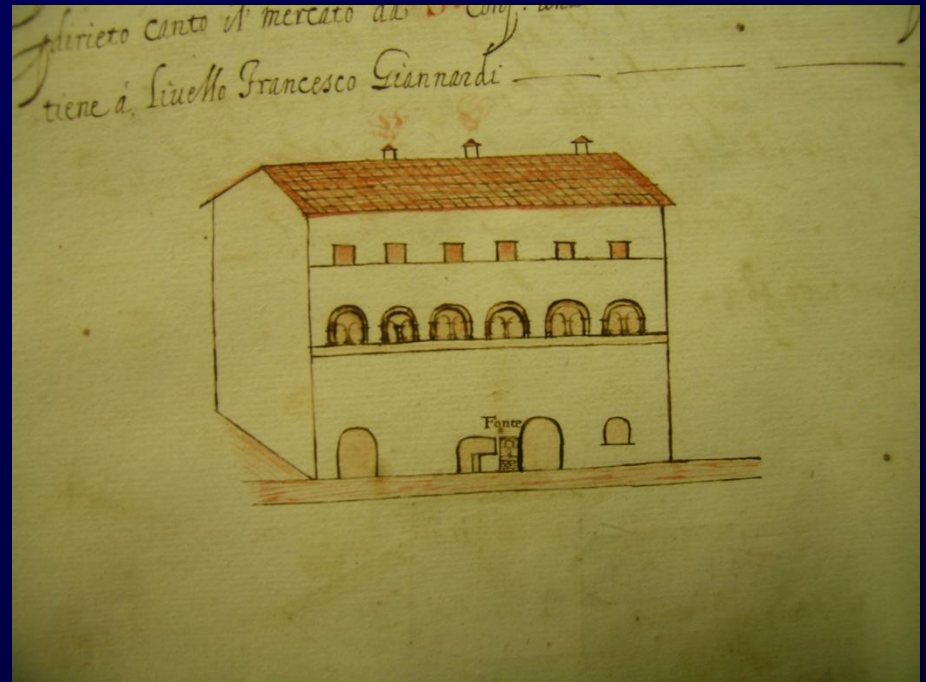 dirieto canto il mercato da
tiene á Liuello Francesco Giannardi
Fonte